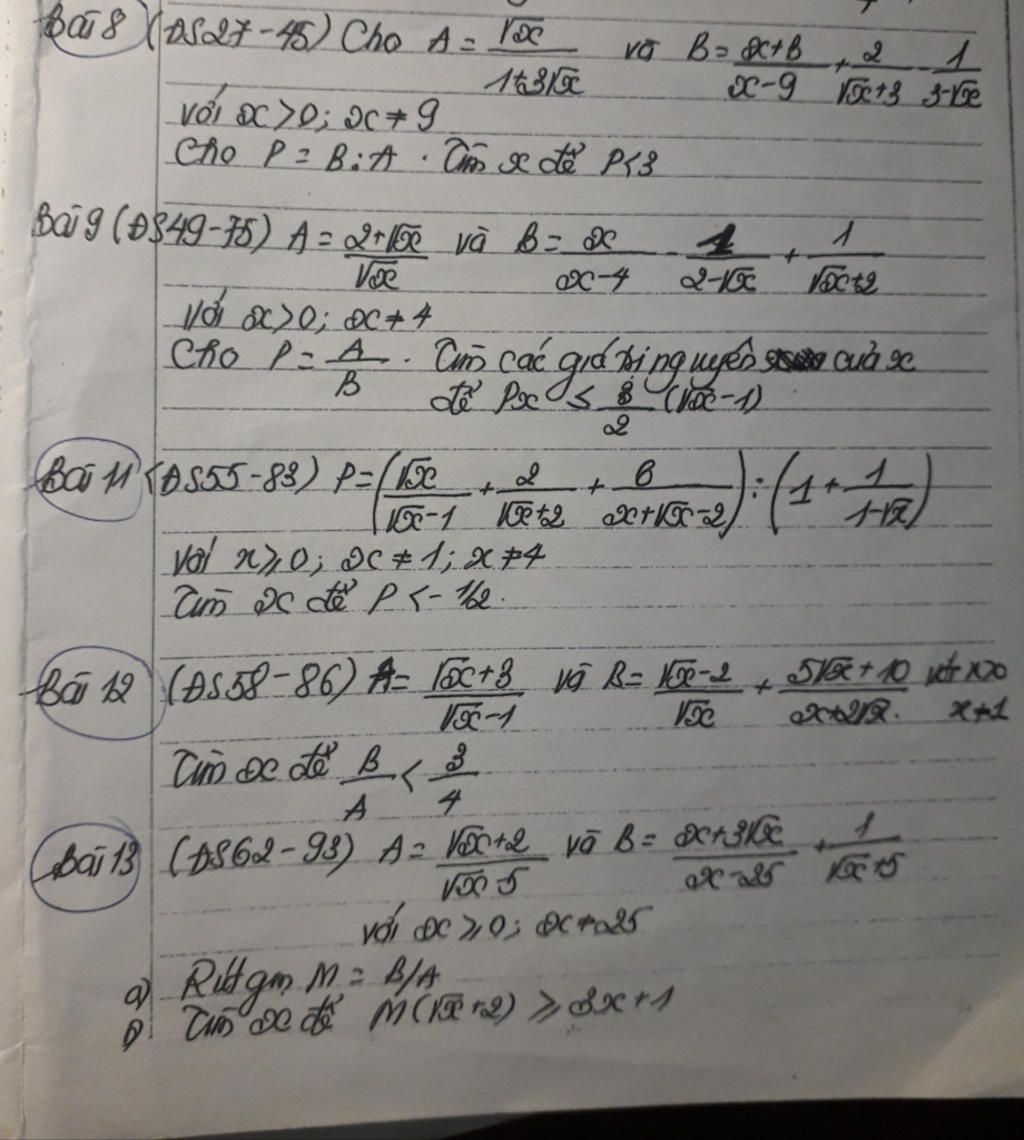 Bài 8 (ĐS27-45) Cho A = √x/(1+3√x) và B = (x+6)/(x-9) + 2/(√x+3) - 1/(3-√x)
với x>0; x≠9
Cho P = B:A. Tìm x để P<3
Bài 9 (ĐS49-75) A = (2+√x)/√x và B = x/(x-4) - 1/(2-√x) + 1/(√x+2)
với x>0; x≠4
Cho P = A/B. Tìm các giá trị nguyên của x
để Px ≤ 3/2 (√x-1)
Bài 11 (ĐS55-83) P = (√x/(√x-1) + 2/(√x+2) + 6/(x+√x-2)) : (1 + 1/(1-√x))
với x≥0; x≠1; x≠4
Tìm x để P <-1/2.
Bài 12 (ĐS58-86) A = (√x+3)/(√x-1) và B = (√x-2)/√x + (5√x+10)/(x+2√x). với x>0 x≠1
Tìm x để B/A < 3/4
Bài 13 (ĐS62-93) A = (√x+2)/(√x-5) và B = (x+3√x)/(x-25) + 1/(√x+5)
với x≥0; x≠25
a) Rút gọn M = B/A
b) Tìm x để M(√x+2) ≥ 3x+1